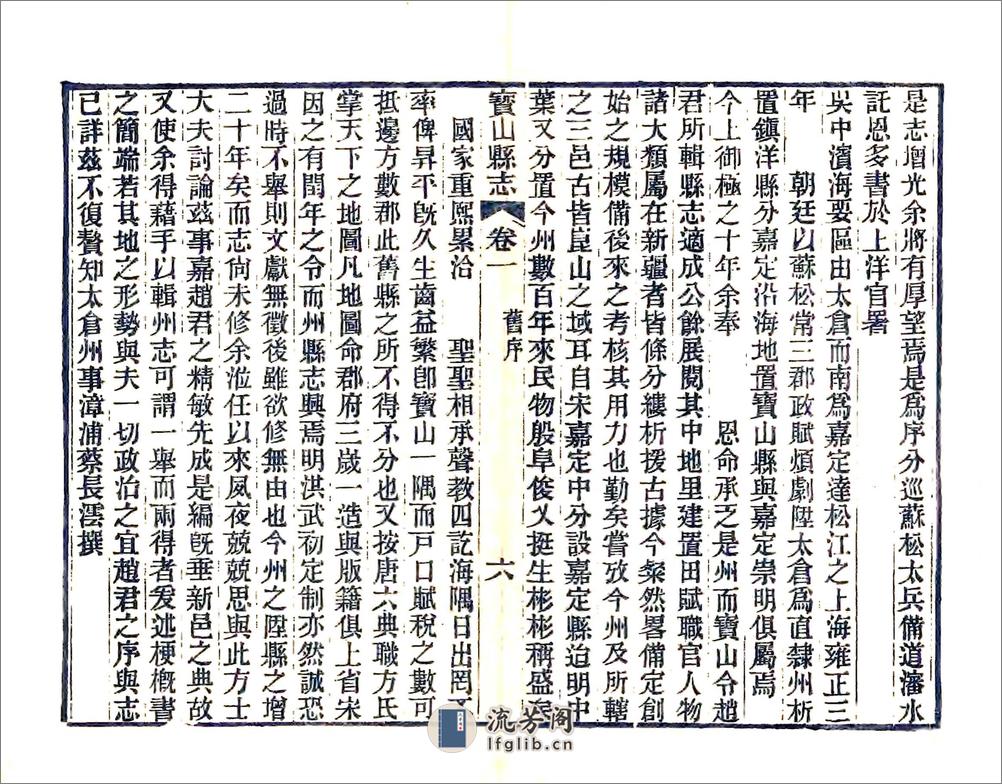 是志增光余將有厚望焉是爲序分巡蘇松太兵備道瀋水
託恩多書於上洋官署
吳中濱海要區由太倉而南爲嘉定達松江之上海雍正三
年 朝廷以蘇松常三郡政賦煩劇陞太倉爲直隸州析
置鎭洋縣分嘉定沿海地置寶山縣與嘉定崇明俱屬焉
今上御極之十年余奉 恩命承乏是州而寶山令趙
君所輯縣志適成公餘展閱其中地里建置田賦職官人物
諸大類屬在新疆者皆條分縷析援古據今粲然畧備定創
始之規模備後來之考核其用力也勤矣嘗攷今州及所轄
之三邑古皆崑山之域耳自宋嘉定中分設嘉定縣迨明中
葉又分置今州數百年來民物殷阜俊乂挺生彬彬稱盛矣
寶山縣志 卷一 舊序 六
國家重熙累洽 聖聖相承聲教四訖海隅日出罔不
率俾昇平旣久生齒益繁卽寶山一隅而戸口賦稅之數可
抵邊方數郡此舊縣之所不得不分也又按唐六典職方氏
掌天下之地圖凡地圖命郡府三歲一造與版籍俱上省宋
因之有閏年之令而州縣志興焉明洪武初定制亦然誠恐
過時不舉則文獻無徵後雖欲修無由也今州之陞縣之增
二十年矣而志尙未修余涖任以來夙夜兢兢思與此方士
大夫討論茲事嘉趙君之精敏先成是編旣垂新邑之典故
又使余得藉手以輯州志可謂一舉而兩得者爰述梗槪書
之簡端若其地之形勢與夫一切政治之宜趙君之序與志
已詳茲不復贅知太倉州事漳浦蔡長澐撰
流芳阁
lfglib.cn